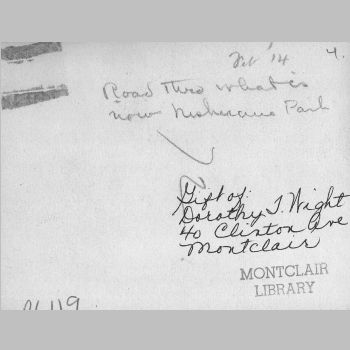 Feb '14
4.
Road Thro what is
now Nishuane Park
Gift of:
Dorothy T. Wight
40 Clinton Ave
Montclair
MONTCLAIR
LIBRARY